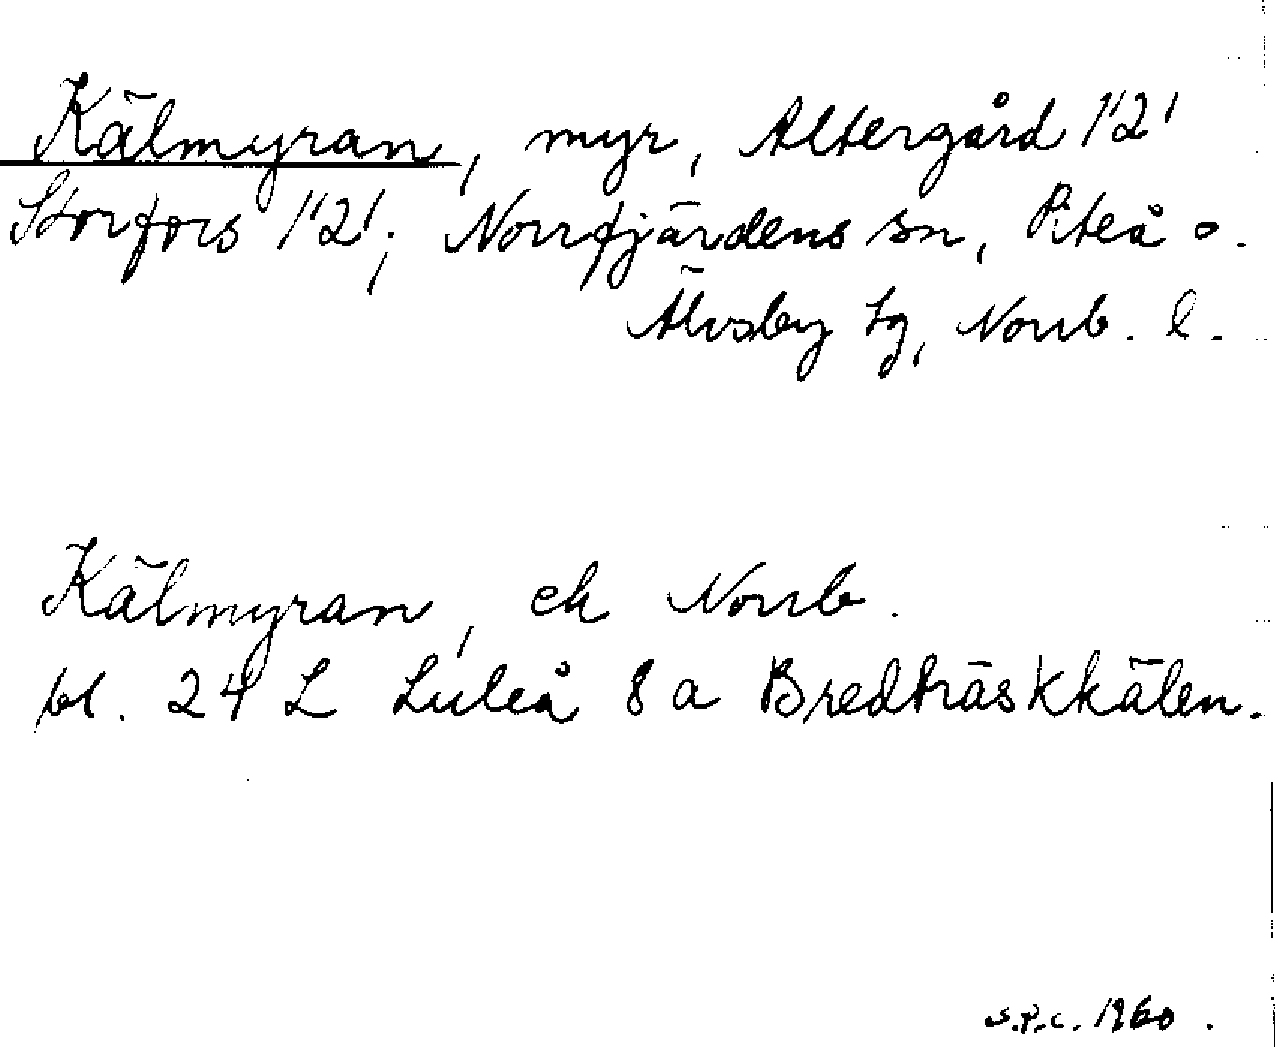 Kälmyran, myr, Altergård 1'2'
Storfors 1'2'; Norrfjärdens sn, Piteå o.
Älvsby tg, Norrb. l.
Kälmyran, ek Norrb.
bl. 24 L Luleå 8 a Bredträskkälen.
S.P.C. 1960.